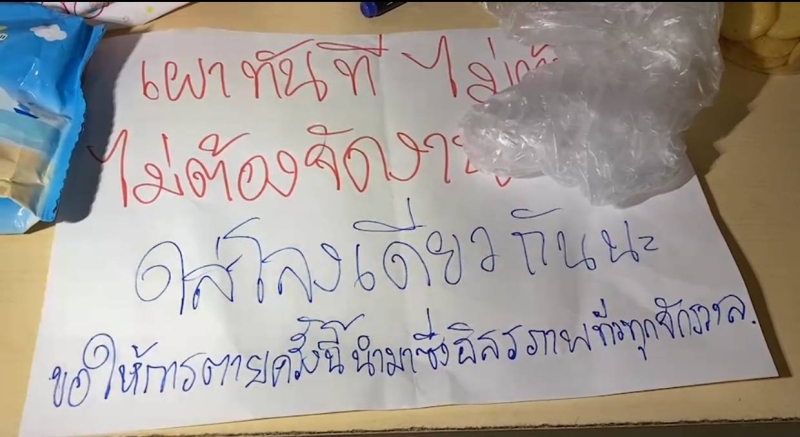 เผาทันที ไม่ต้
ไม่ต้องจัดงาน
ใส่โลงเดียวกันนะ
ขอให้การตายครั้งนี้นำมาซึ่งอิสรภาพทั่วทุกจักรวาล.